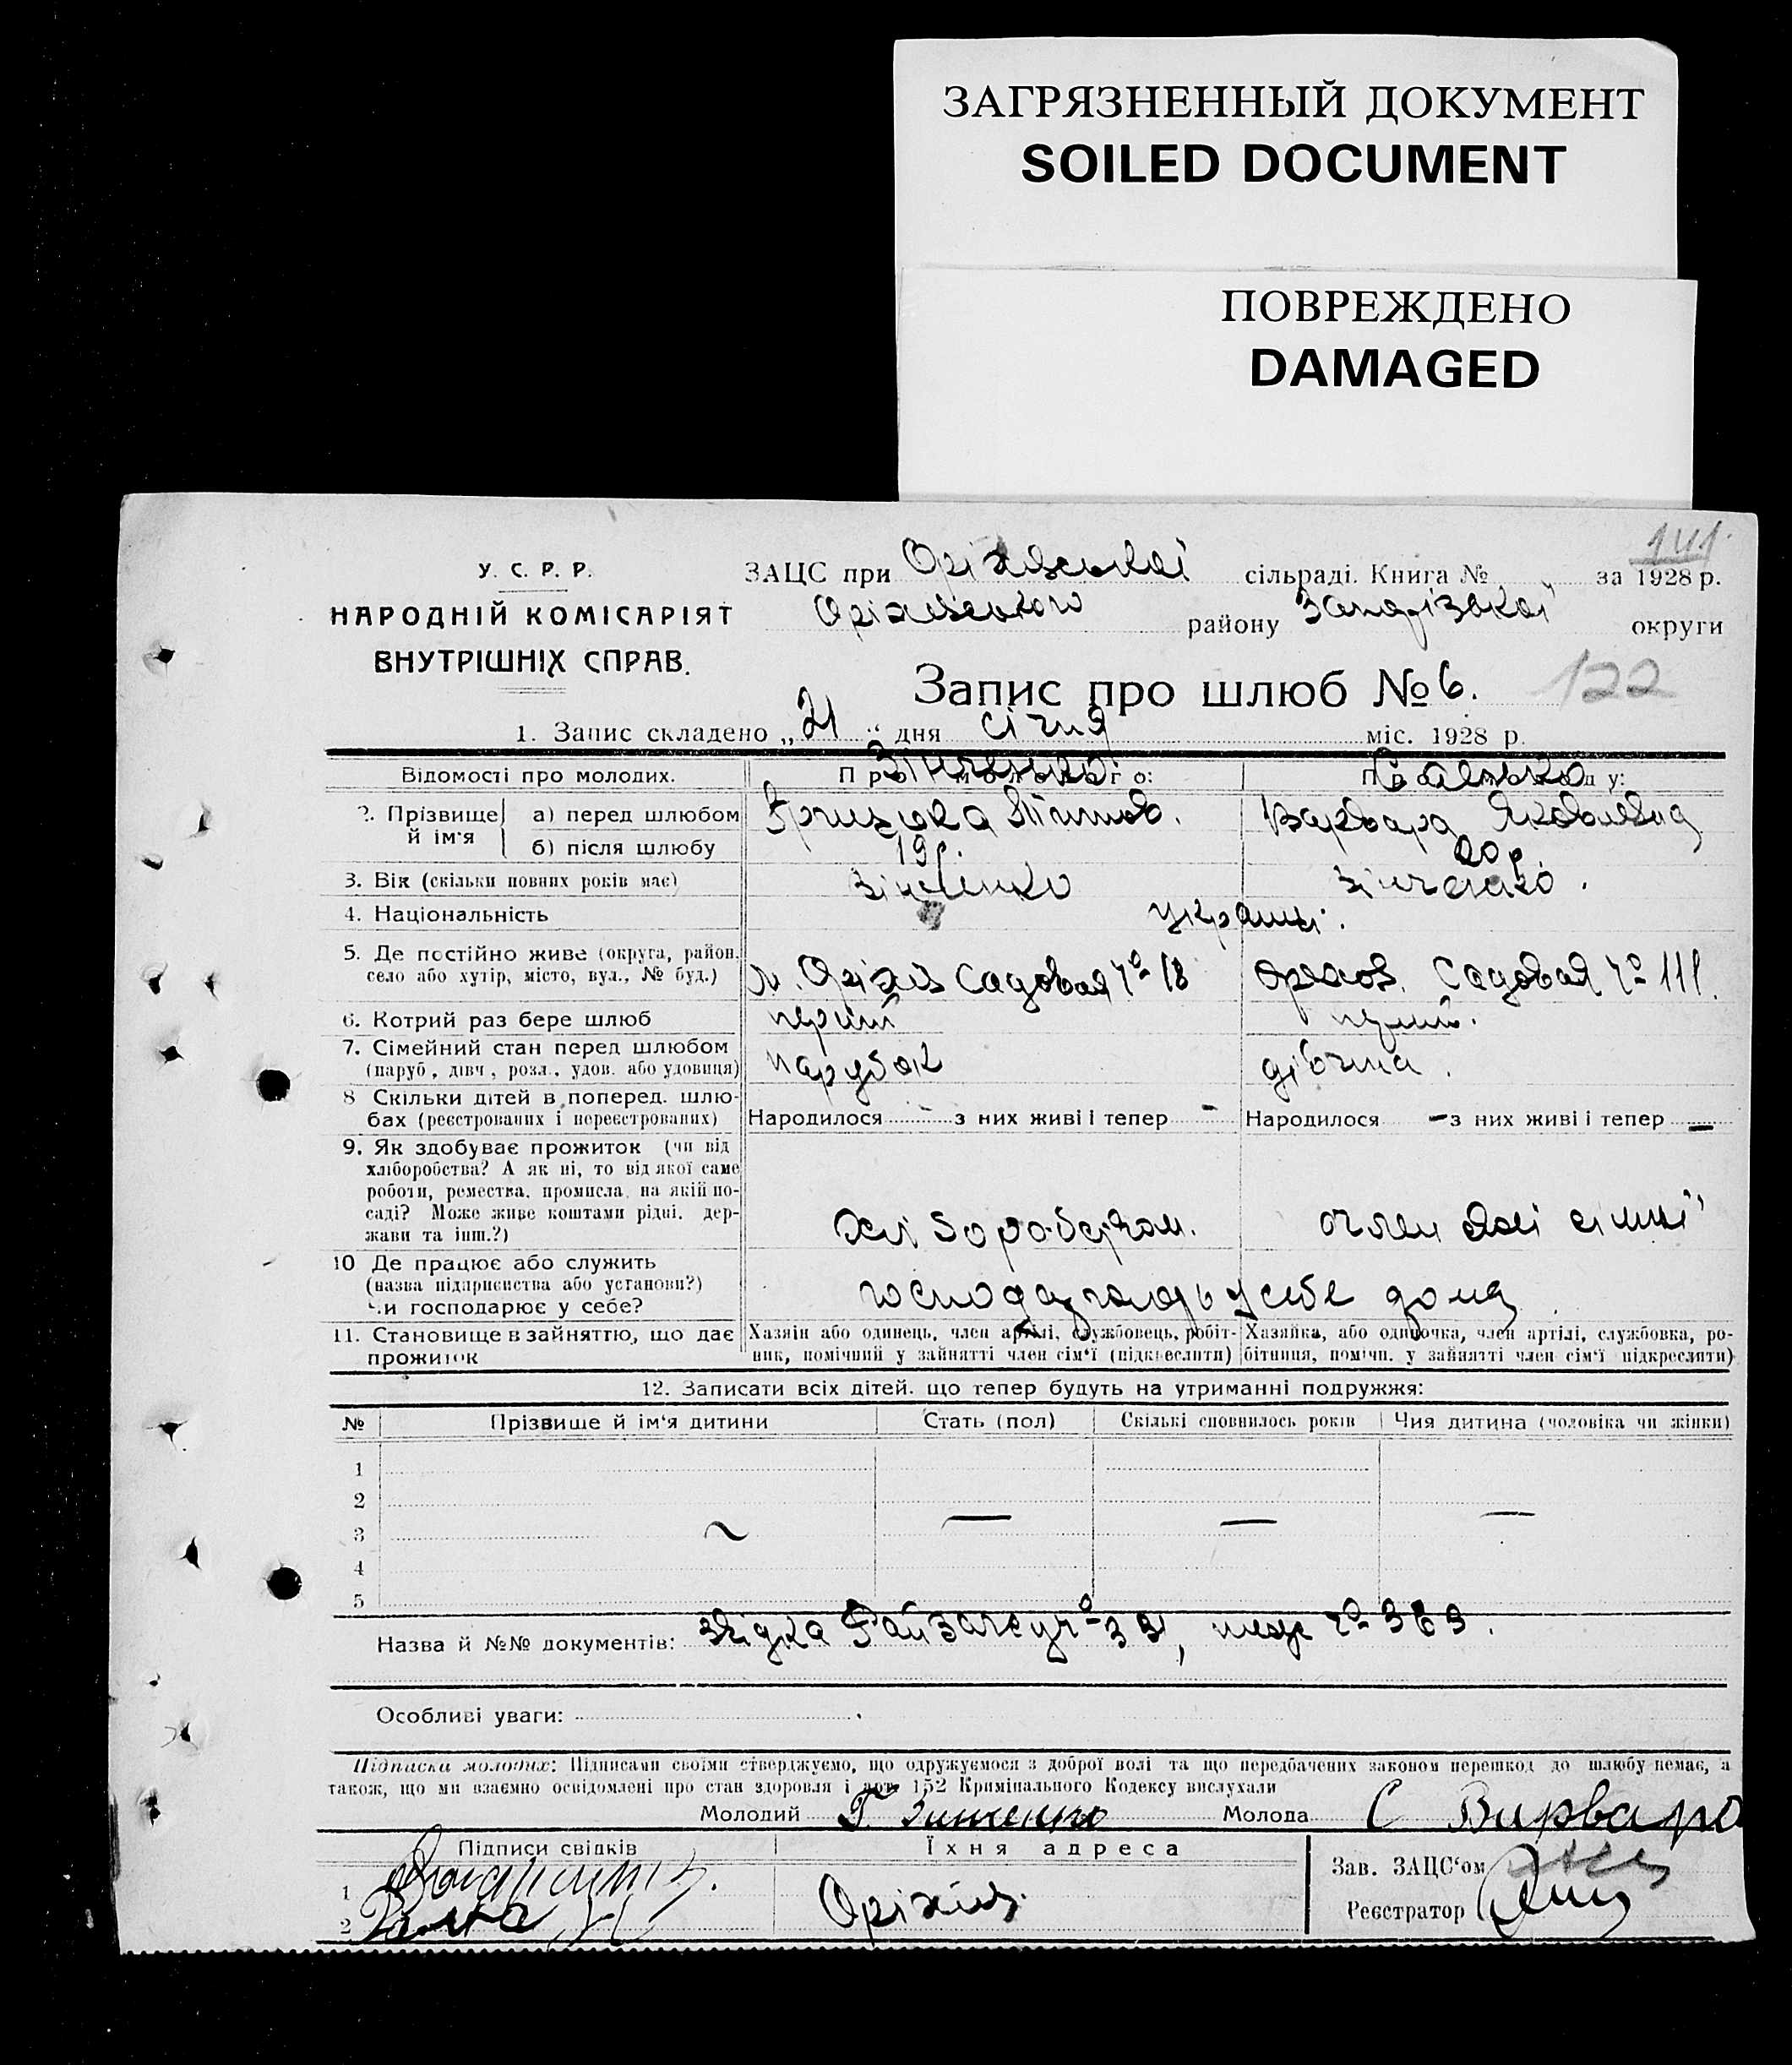 ЗАГРЯЗНЕННЫЙ ДОКУМЕНТ
SOILED DOCUMENT
ПОВРЕЖДЕНО
DAMAGED
141
У. С. Р. Р.
НАРОДНІЙ КОМІСАРІЯТ
ВНУТРІШНІХ СПРАВ.
ЗАЦС при Оріхівської сільраді. Книга № за 1928 р.
Оріхівського району Запорізької округи
Запис про шлюб № 6.
122
1. Запис складено „21“ дня січня міс. 1928 р.
Відомості про молодих. Про молодого: Про молоду:
Зінченко
2. Прізвище й ім'я
а) перед шлюбом Варвара Яковлевна
б) після шлюбу 19 р. 20 р.
3. Вік (скільки повних років має) Зінченко Зінченко.
4. Національність україн.
5. Де постійно живе (округа, район, село або хутір, місто, вул., № буд.) м. Оріхів Садовая № 18 Орехов. Садовая № 111.
6. Котрий раз бере шлюб перший перший.
7. Сімейний стан перед шлюбом (паруб., дівч., розл., удов. або удовиця) парубок дівчина.
8 Скільки дітей в поперед. шлюбах (реєстрованих і нереєстрованих) Народилося - з них живі і тепер - Народилося - з них живі і тепер -
9. Як здобуває прожиток (чи від
хліборобства? А як ні, то від якої саме
роботи, ремества, промисла, на якій по-
саді? Може живе коштами рідні, дер-
жави та інш.?) член сімї
10 Де працює або служить
(назва підприємства або установи?)
чи господарює у себе? у себе дома
11. Становище в зайняттю, що дає прожиток
Хазяїн або одинець, член артілі, службовець, робіт-
ник, помічний у зайнятті член сім'ї (підкреслити)
Хазяйка, або одиночка, член артілі, службовка, ро-
бітниця, помічн. у зайнятті член сім'ї підкреслити)
12. Записати всіх дітей, що тепер будуть на утриманні подружжя:
№ Прізвище й ім'я дитини Стать (пол) Скількі сповнилось років Чия дитина (чоловіка чи жінки)
1
2
3
4
5
Назва й №№ документів: № 363.
Особливі уваги:
Підписка молодих: Підписами своїми стверджуємо, що одружуємося з доброї волі та що передбачених законом перешкод до шлюбу немає, а
також, що ми взаємно освідомлені про стан здоровля і арт. 152 Кримінального Кодексу вислухали
Молодий Г. Зинченко Молода С Варвара
Підписи свідків Їхня адреса
1
2
Оріхів
Зав. ЗАЦС'ом
Реєстратор